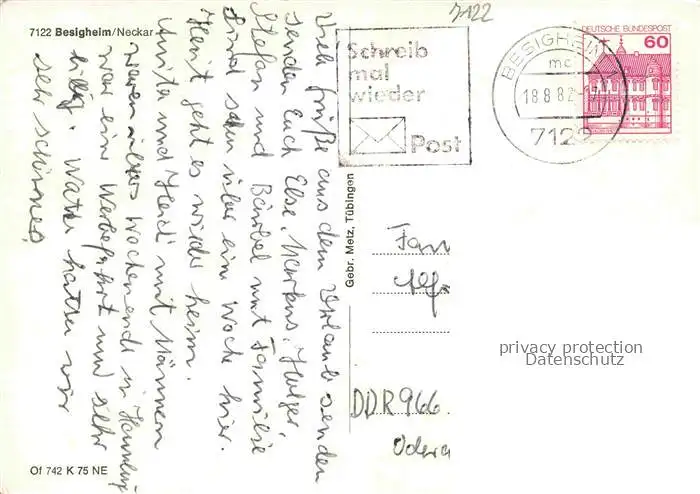 7122 Besigheim/Neckar
Viele Grüße aus dem Urlaub senden
senden Euch Else, Markus, Holger,
Stefan und Bärbel mit Familie
Sind schon über ein Woche hier.
Heut geht es wieder heim.
Anita und Heidi mit Männern
waren übers Wochenende in Hamburg
war eine Werbefahrt und sehr
billig. Wetter hatten wir
sehr schönes.
Of 742 K 75 NE
Gebr. Metz, Tübingen
7122
Schreib
mal
wieder
Post
BESIGHEIM
mc
18.8.82
712
DEUTSCHE BUNDESPOST
60
Fam
DDR 966
privacy protection
Datenschutz